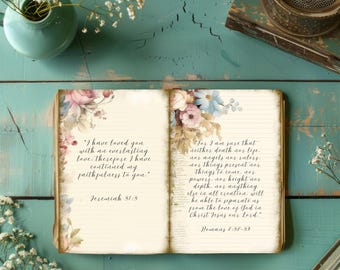 "I have loved you
with an everlasting
love; therefore I have
continued my
faithfulness to you."
Jeremiah 31:3
"For I am sure that
neither death nor life,
nor angels nor rulers,
nor things present nor
things to come, nor
powers, nor height nor
depth, nor anything
else in all creation, will
be able to separate us
from the love of God in
Christ Jesus our Lord."
Romans 8:38-39